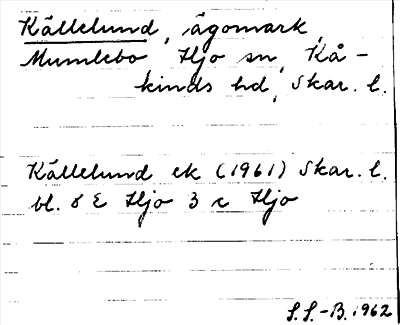 Källelund, ägomark,
Mumlebo Hjo sn, Kå-
kinds hd, Skar. l.
Källelund ek (1961) Skar. l.
bl. 8 E Hjo 3 c Hjo
S.S.-B. 1962